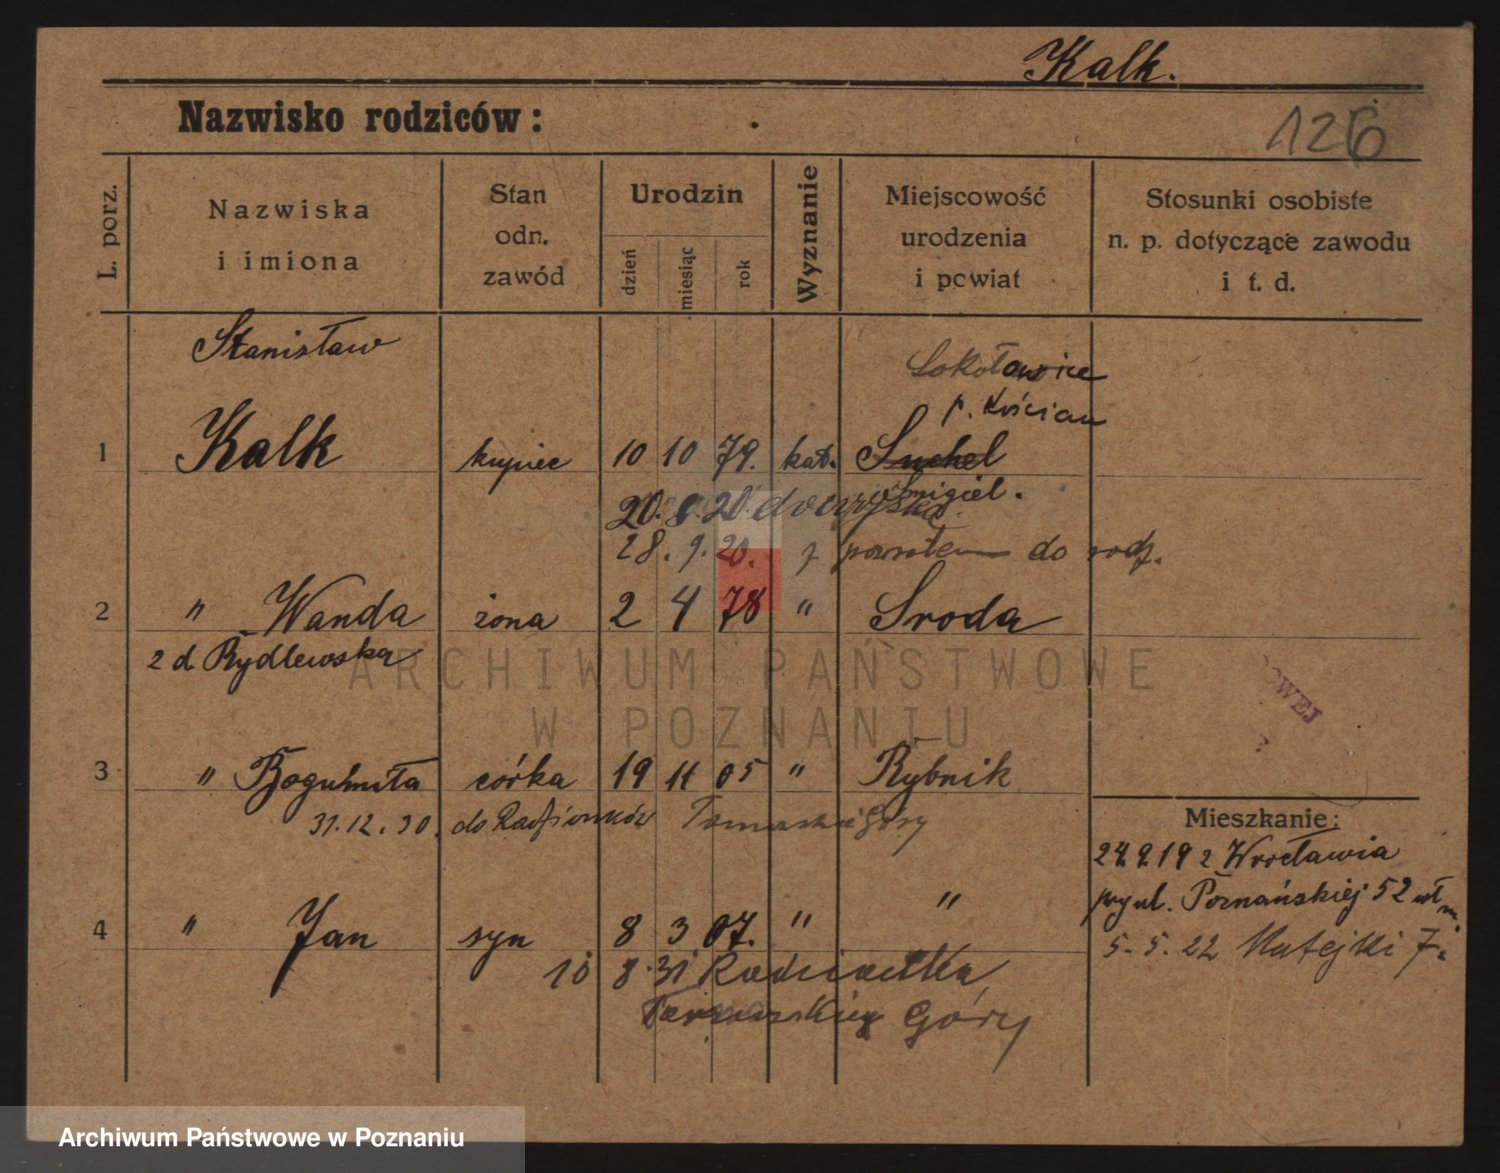 Kalk.
Nazwisko rodziców:
126
L. porz.
Nazwiska
i imiona
Stan
odn.
zawód
Urodzin
dzień
miesiąc
rok
Wyznanie
Miejscowość
urodzenia
i powiat
Stosunki osobiste
n. p. dotyczące zawodu
i t. d.
Stanisław
Sokołowice
p. Kościan
1 Kalk kupiec 10 10 79. kat. Suchel
Śmigiel.
20. 8. 20
28. 9. 20. z powrotem do rodz.
2 " Wanda żona 2 4 78 " Sroda
2 d. Rydlewska
ARCHIWUM PAŃSTWOWE
W POZNANIU
OWEJ
3 " Bogumiła córka 19 11 05 " Rybnik
31.12.30. do Radzionków Tarnowskie Góry
Mieszkanie:
24.9.19 z Wrocławia
przy ul. Poznańskiej 52
4 " Jan syn 8 3 07. " "
5.5.22 Matejki 7.
10 8.31
Tarnowskie Góry
Archiwum Państwowe w Poznaniu